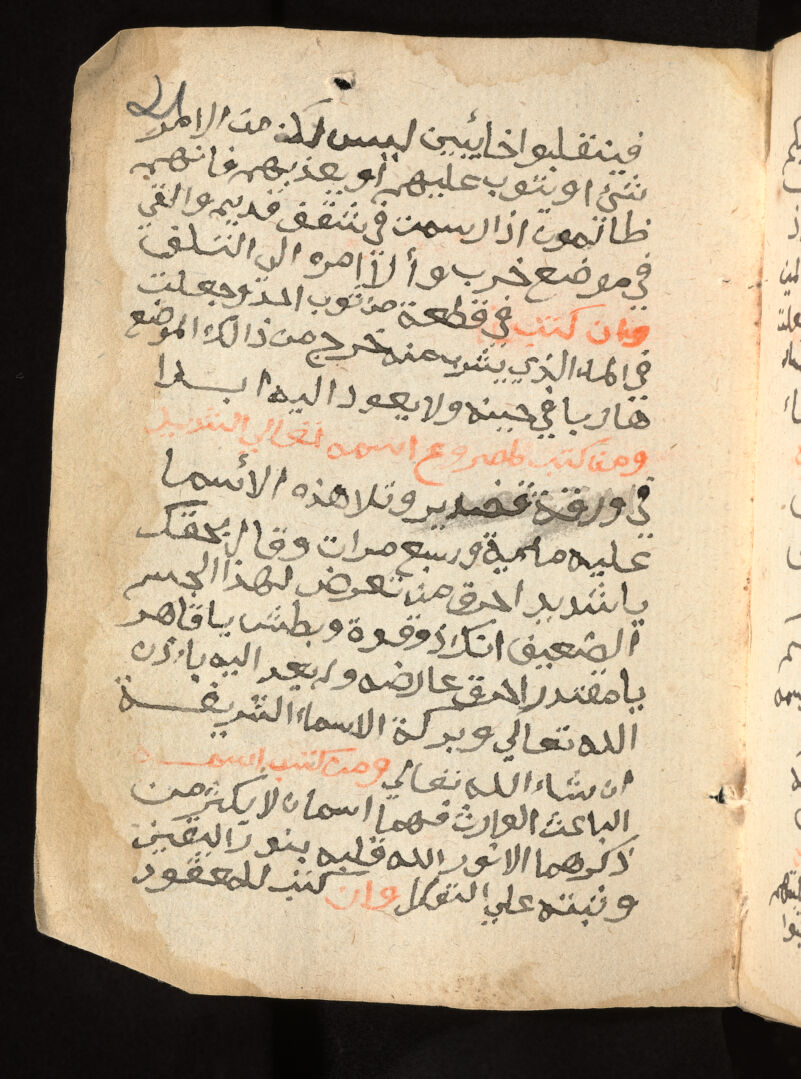 فينقلبوا خائبين ليس لك من الامر
شئ او يتوب عليهم أو يعذبهم فانهم
ظالمون اذا رسمت في شقف قديم والقي
في موضع خرب وألا امره الي التلف
وان كتب في قطعة من ثوب وجعلت
في الماء الذي يشرب منه خرج من ذالك الموضع
هاربا في حينه ولا يعود اليه ابدا
ومن كتب اسمه تعالي الشديد
في ورقة قصدير وتلا هذه الأسما
عليه ماية وربع مرات وقال بحقك
يا شديد احرق من تعرض لهذا الجسم
الضعيف انك ذو قوة وبطش يا قاهر
يا مقتدر احرق عارضه ولم يعد اليه باذن
الله تعالي وبركة الاسماء الشريفة
ان شاء الله تعالي ومن كتب اسمه
الباعث الوارث فهما اسمان لا يكثر من
ذكرهما الا نور الله قلبه بنور اليقين
وثبته علي التوكل وان كتب للمعقود